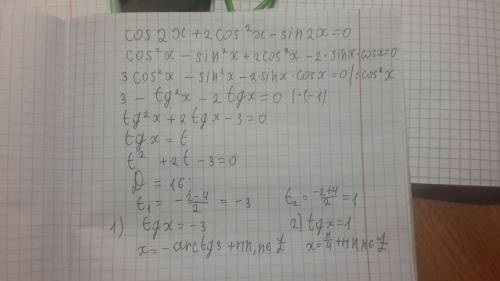 cos2x+2cos²x-sin2x=0
cos²x-sin²x+2cos²x-2·sinx·cosx=0
3cos²x-sin²x-2sinx·cosx=0 |:cos²x
3-tg²x-2tgx=0 |·(-1)
tg²x+2tgx-3=0
tgx=t
t²+2t-3=0
D=16
t₁=-\frac{2-4}{2}=-3 t₂=\frac{-2+4}{2}=1
1) tgx=-3 2) tgx=1
x=-arctg3+πn, n∈Z x=\frac{π}{4}+πn, n∈Z